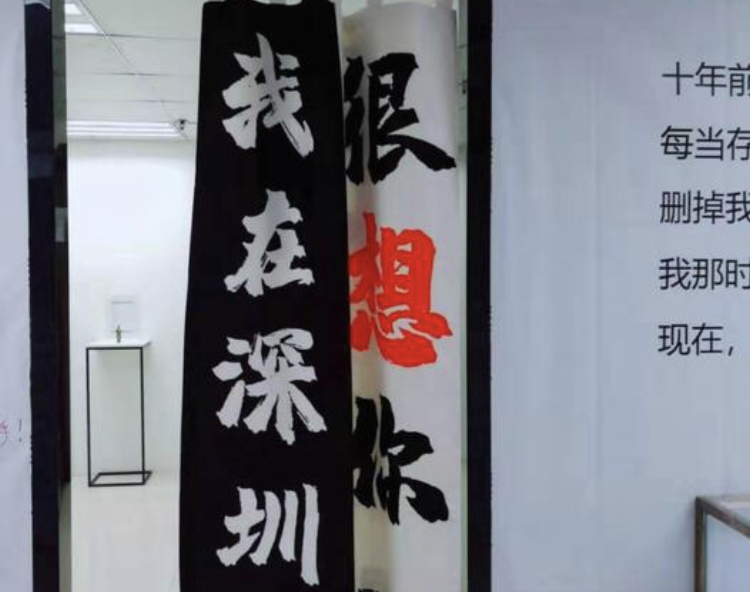 我在深圳
很想你
十年前
每当存
删掉我
我那时
现在，